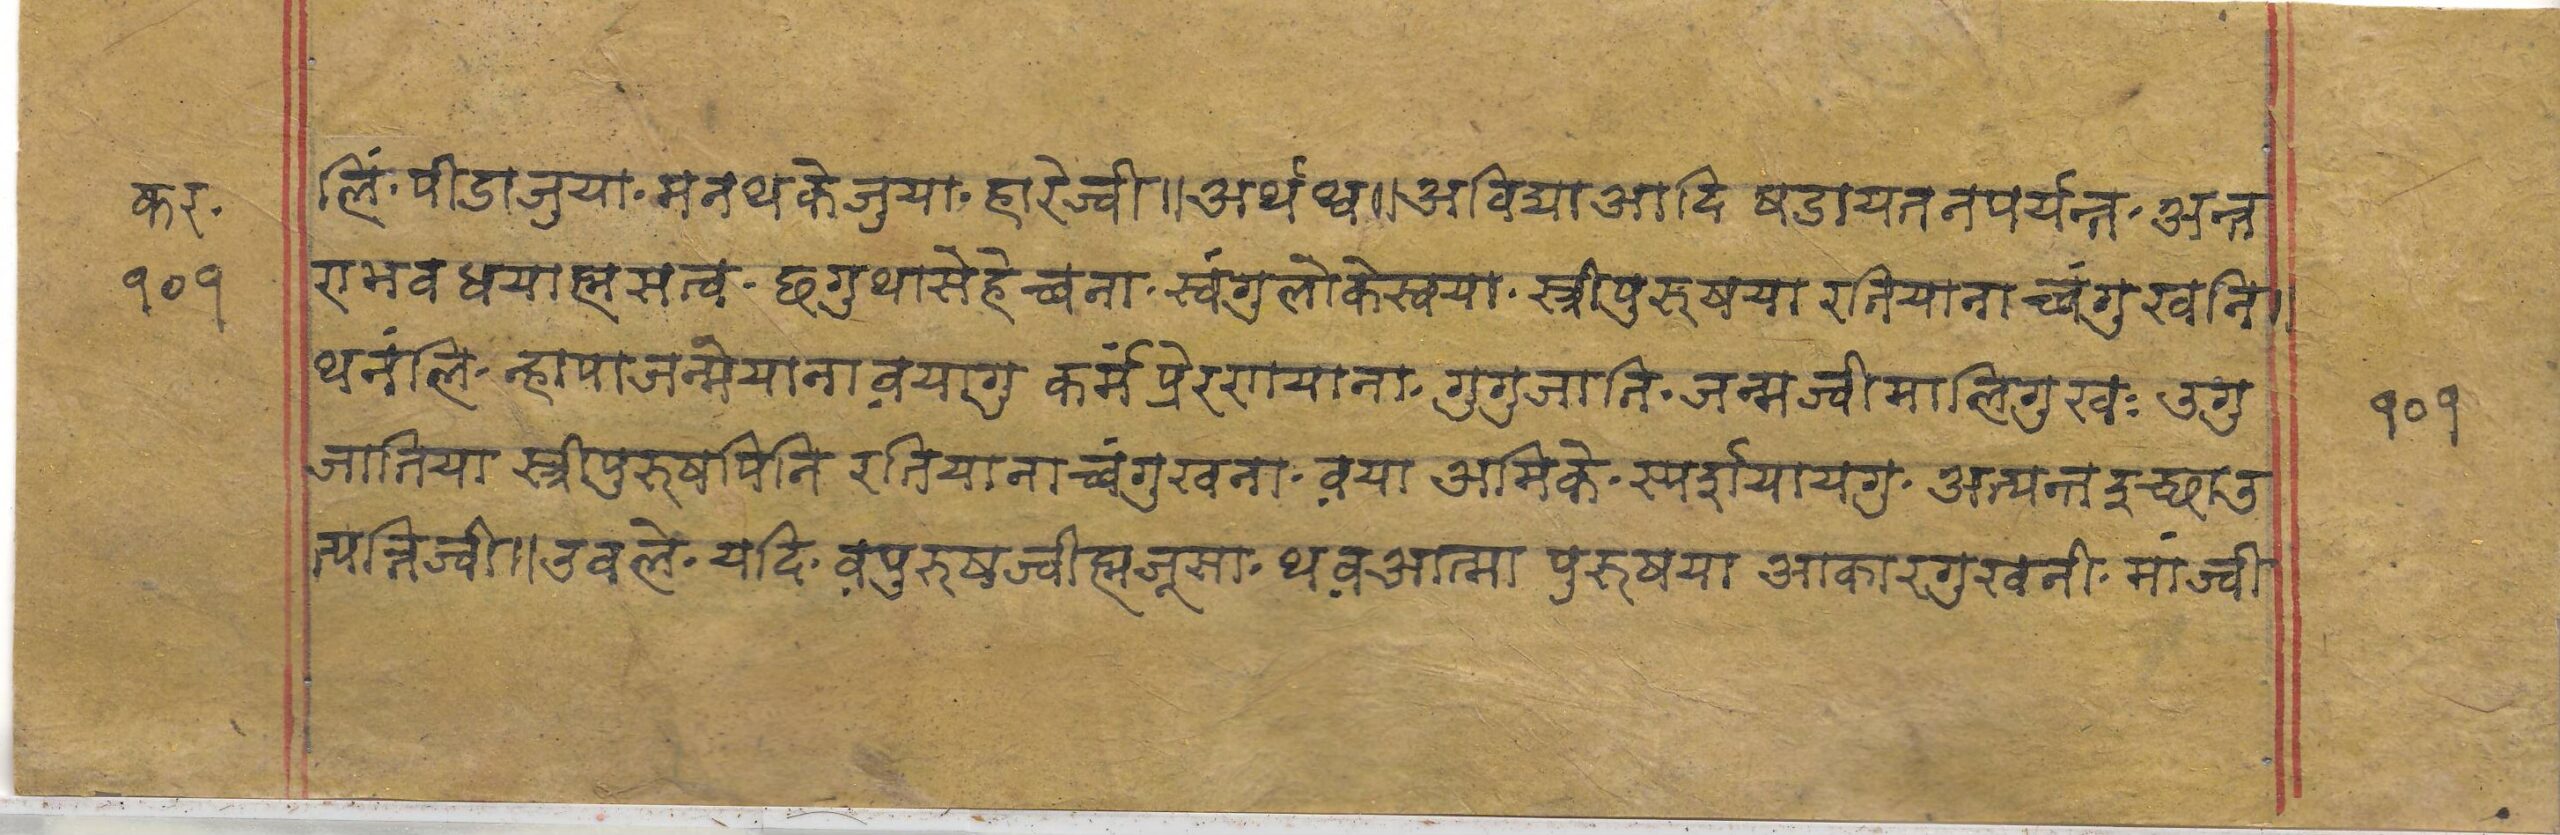 कर·
१०१
लिं· पीडाजुया· मनथकेजुया· हारेज्वी॥ अर्थथ्व॥ अविद्याआदि षडायतनपर्यन्त· अन्त
राभवधयाह्मसत्व· छगुथासेहेच्वना· स्वंगुलोकेस्वया· स्त्रीपुरूषया रतियानाच्वंगुखनि॥
थनंलि· न्हापाजन्मेयानाव़यागु कर्मंप्रेरणायाना· गुगुजाति· जन्मज्वीमालिगुखः उगु
जातिया स्त्रीपुरूषपिनि रतियानाच्वंगुखना· व़या अमिके· स्पर्शयायगु· अत्यन्तइच्छाउ
त्पन्निज्वी॥ उवले· यदि· व़पुरूषज्वीह्मजूसा· थव़आत्मा पुरूषया आकारगुखनी· मांज्वी
१०१